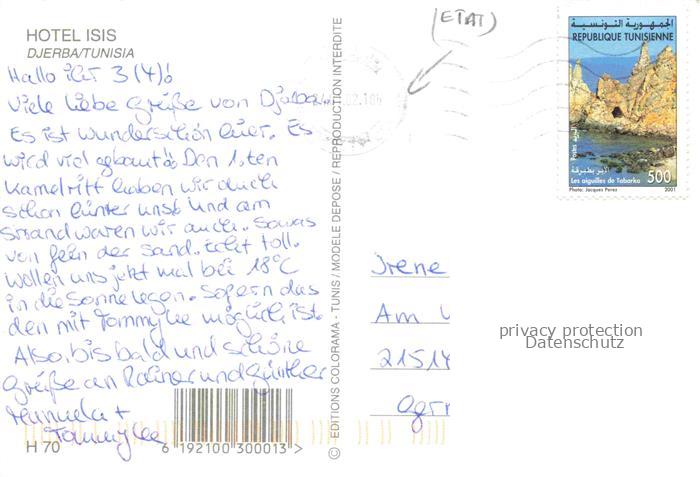 HOTEL ISIS
DJERBA/TUNISIA
(ETAT)
Hallo ihr 3(4)!
Viele liebe Grüße von Djerba.
Es ist wunderschön hier. Es
wird viel gebaut! Den 1.ten
Kamelritt haben wir auch
schon hinter uns! Und am
Strand waren wir auch. Sowas
von fein der Sand. Echt toll.
Wollen uns jetzt mal bei 18°C
in die Sonne legen. Sofern das
den mit Tommylee möglich ist.
Also, bis bald und schöne
Grüße an Rainer und Günther
Manuela +
Tommylee
H 70
6 192100 300013 >
© EDITIONS COLORAMA - TUNIS / MODELE DEPOSE / REPRODUCTION INTERDITE
الجمهورية التونسية
REPUBLIQUE TUNISIENNE
Postes البريد
الإبر بطبرقة
Les aiguilles de Tabarka
500
Photo: Jacques Perez 2001
Irene
Am
21514
Ger
privacy protection
Datenschutz